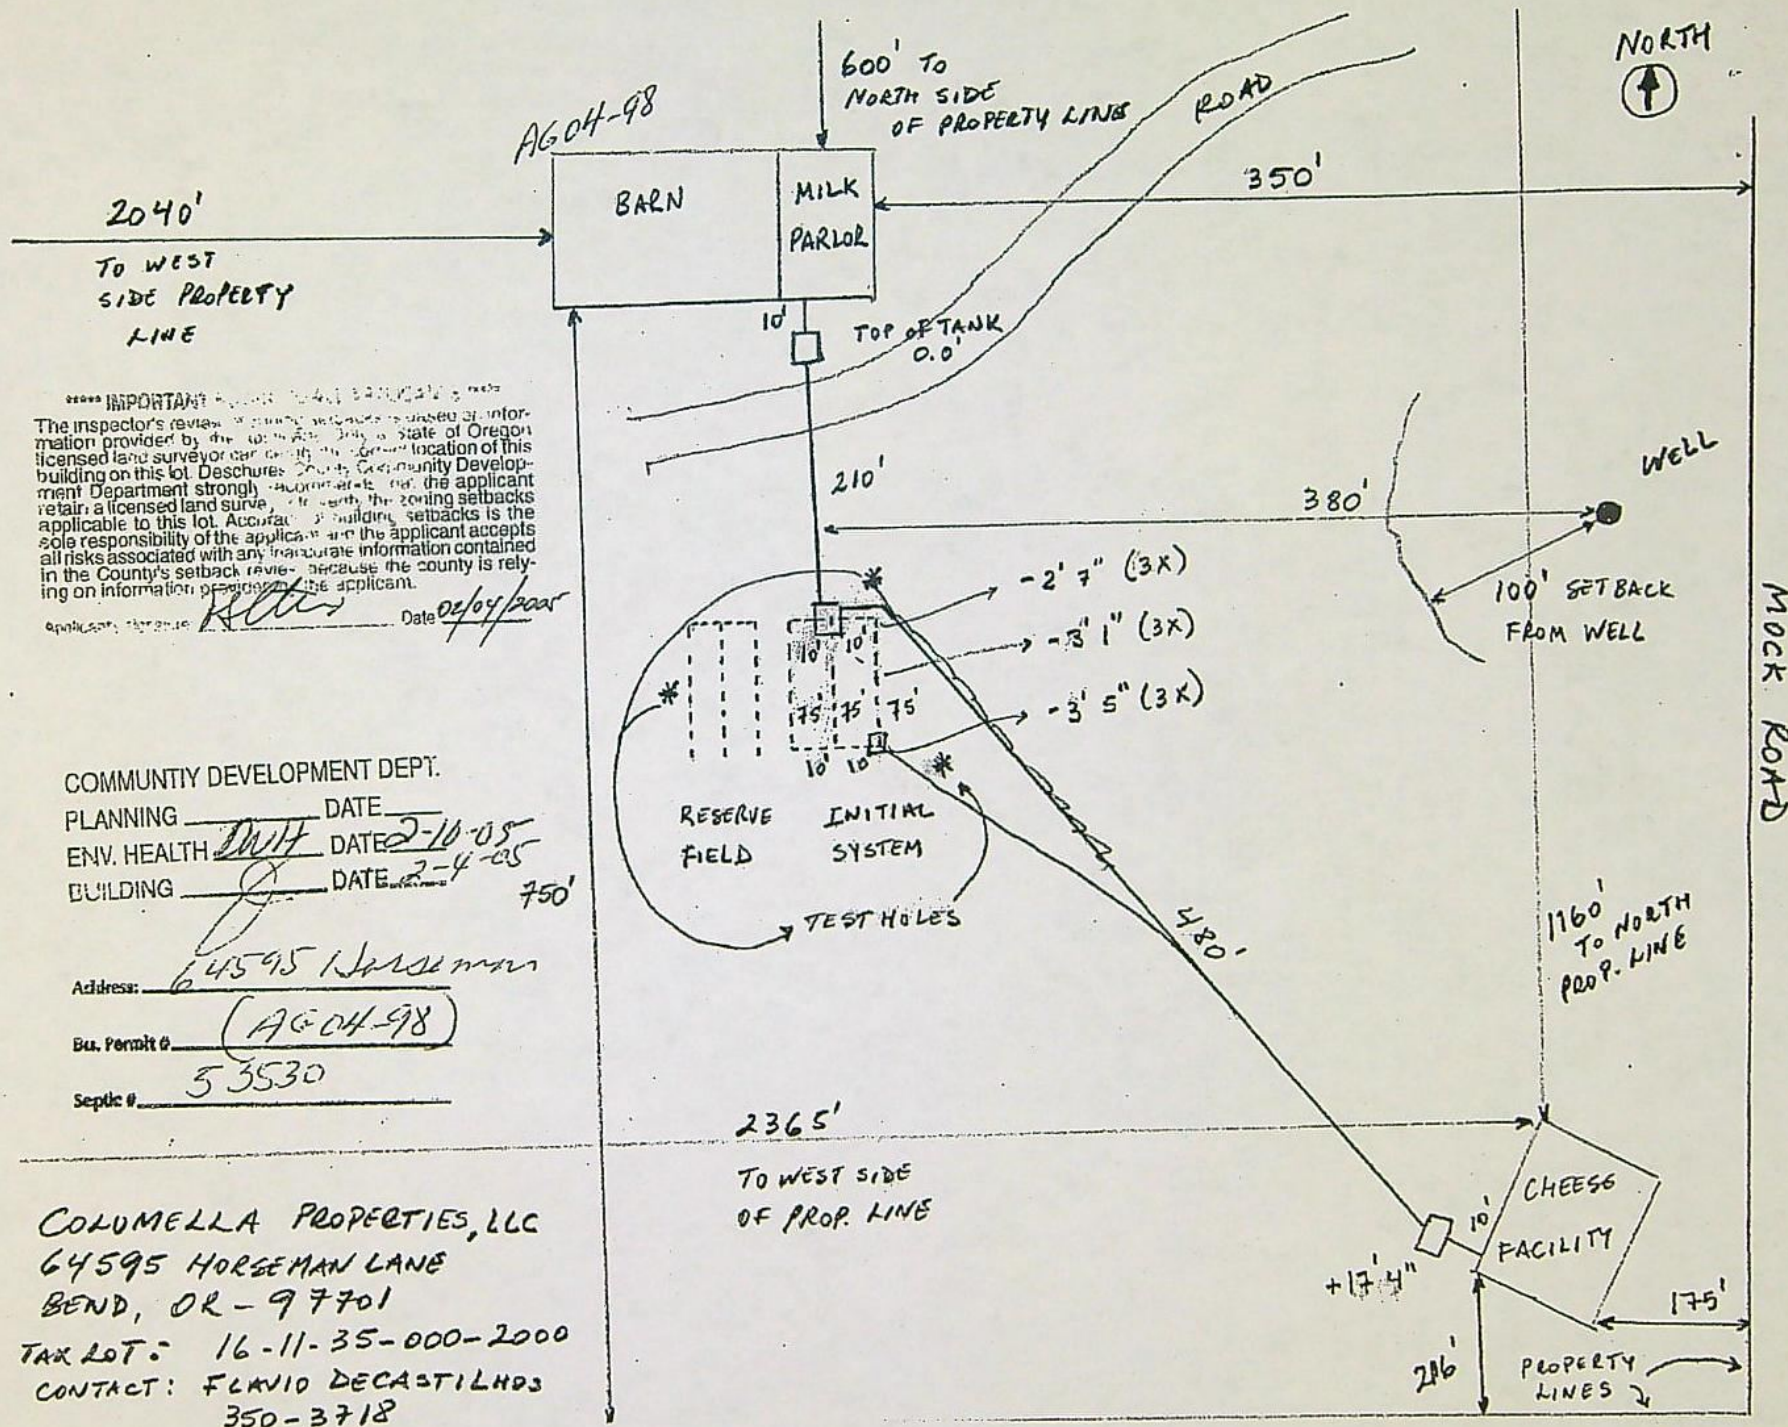 NORTH
600' TO
NORTH SIDE
OF PROPERTY LINE
ROAD
AG04-98
BARN
MILK
PARLOR
350'
2040'
TO WEST
SIDE PROPERTY
LINE
10'
TOP OF TANK
0.0'
***** IMPORTANT
The inspector's review is based on infor-
mation provided by the State of Oregon
licensed land surveyor can location of this
building on this lot. Deschutes County Community Develop-
ment Department strongly the applicant
retain a licensed land the zoning setbacks
applicable to this lot. building setbacks is the
sole responsibility of the applicant and the applicant accepts
all risks associated with any inaccurate information contained
in the County's setback review because the county is rely-
ing on information provided the applicant.
Date 02/04/2005
210'
380'
WELL
100' SETBACK
FROM WELL
MOCK ROAD
-2' 7" (3X)
-3' 1" (3X)
-3' 5" (3X)
10' 10'
75' 75' 75'
10' 10'
RESERVE
FIELD
INITIAL
SYSTEM
TEST HOLES
480'
750'
COMMUNTIY DEVELOPMENT DEPT.
PLANNING DATE
ENV. HEALTH DWH DATE 2-10-05
BUILDING DATE 2-4-05
Address: 64595 Horseman
Bu. Permit # AG04-98
Septic # 53530
1160'
TO NORTH
PROP. LINE
2365'
TO WEST SIDE
OF PROP. LINE
CHEESE
FACILITY
10'
+17' 4"
175'
PROPERTY
LINES
COLUMELLA PROPERTIES, LLC
64595 HORSEMAN LANE
BEND, OR - 97701
TAX LOT: 16-11-35-000-2000
CONTACT: FLAVIO DECASTILHOS
350-3718